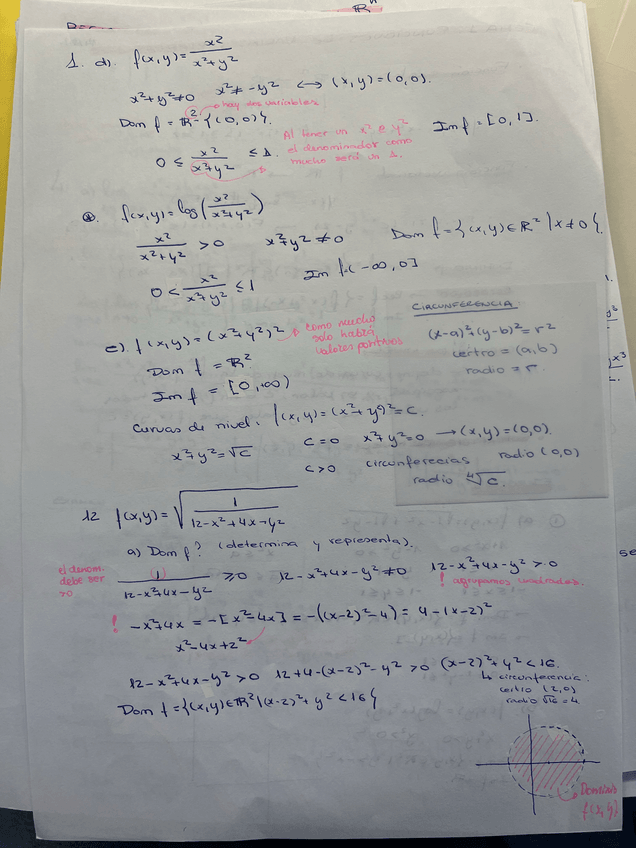 1. d). f(x,y) = x²/(x²+y²)
x²+y²≠0 x²≠-y² ⟷ (x,y)=(0,0).
hay dos variables.
Dom f = ℝ²-{(0,0)}.
Al tener un x² e y² el denominador como mucho será un 1.
Im f = [0,1].
0 ≤ x²/(x²+y²) ≤ 1.
f(x,y) = log(x²/(x²+y²))
x²/(x²+y²) > 0 x²+y²≠0 Dom f = {(x,y)∈ℝ² | x≠0}.
0 < x²/(x²+y²) ≤ 1 Im f(-∞,0]
CIRCUNFERENCIA:
(x-a)²+(y-b)²=r²
centro = (a,b)
radio = r.
e). f(x,y) = (x²+y²)²
como mucho solo habrá valores positivos
Dom f = ℝ²
Im f = [0,∞)
Curvas de nivel: f(x,y)=(x²+y²)²=C.
x²+y²=√C C=0 x²+y²=0 → (x,y)=(0,0).
C>0 circunferecias radio (0,0)
radio ⁴√C.
12 f(x,y)=√(1/(12-x²+4x-y²))
a) Dom f? (determina y representa).
el denom. debe ser >0
1/(12-x²+4x-y²) ≥0 12-x²+4x-y²≠0 12-x²+4x-y²>0
! agrupamos cuadrados.
! -x²+4x = -[x²-4x] = -((x-2)²-4) = 4-(x-2)²
x²-4x+2²
12-x²+4x-y²>0 12+4-(x-2)²-y²>0 (x-2)²+y²<16.
↳ circunferencia:
centro (2,0)
radio √16=4
Dom f={(x,y)∈ℝ²|(x-2)²+y²<16}
Dominio
f(x,y)